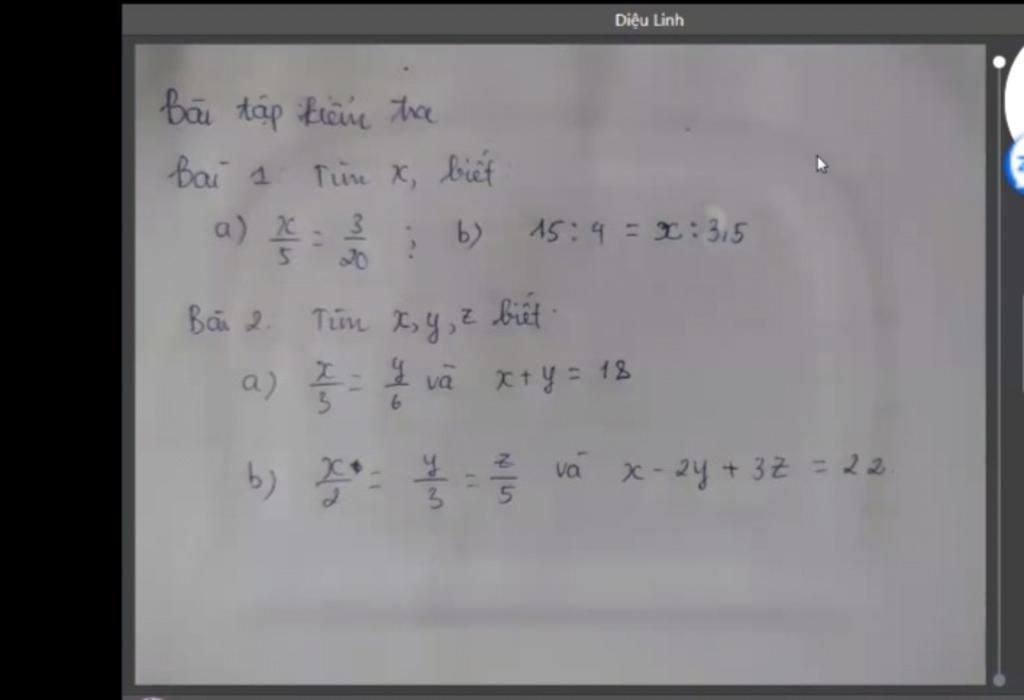 Diệu Linh
Bài tập kiểm tra
Bài 1 Tìm x, biết
a) x/5 = 3/20 ; b) 15 : 4 = x : 3,5
Bài 2. Tìm x, y, z biết
a) x/3 = y/6 và x + y = 18
b) x/2 = y/3 = z/5 và x - 2y + 3z = 22.